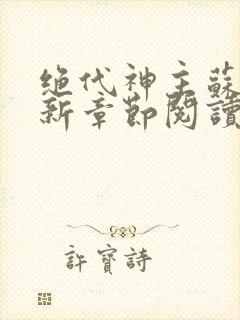 绝代神主蘇
新章節閱讀
許寶詩